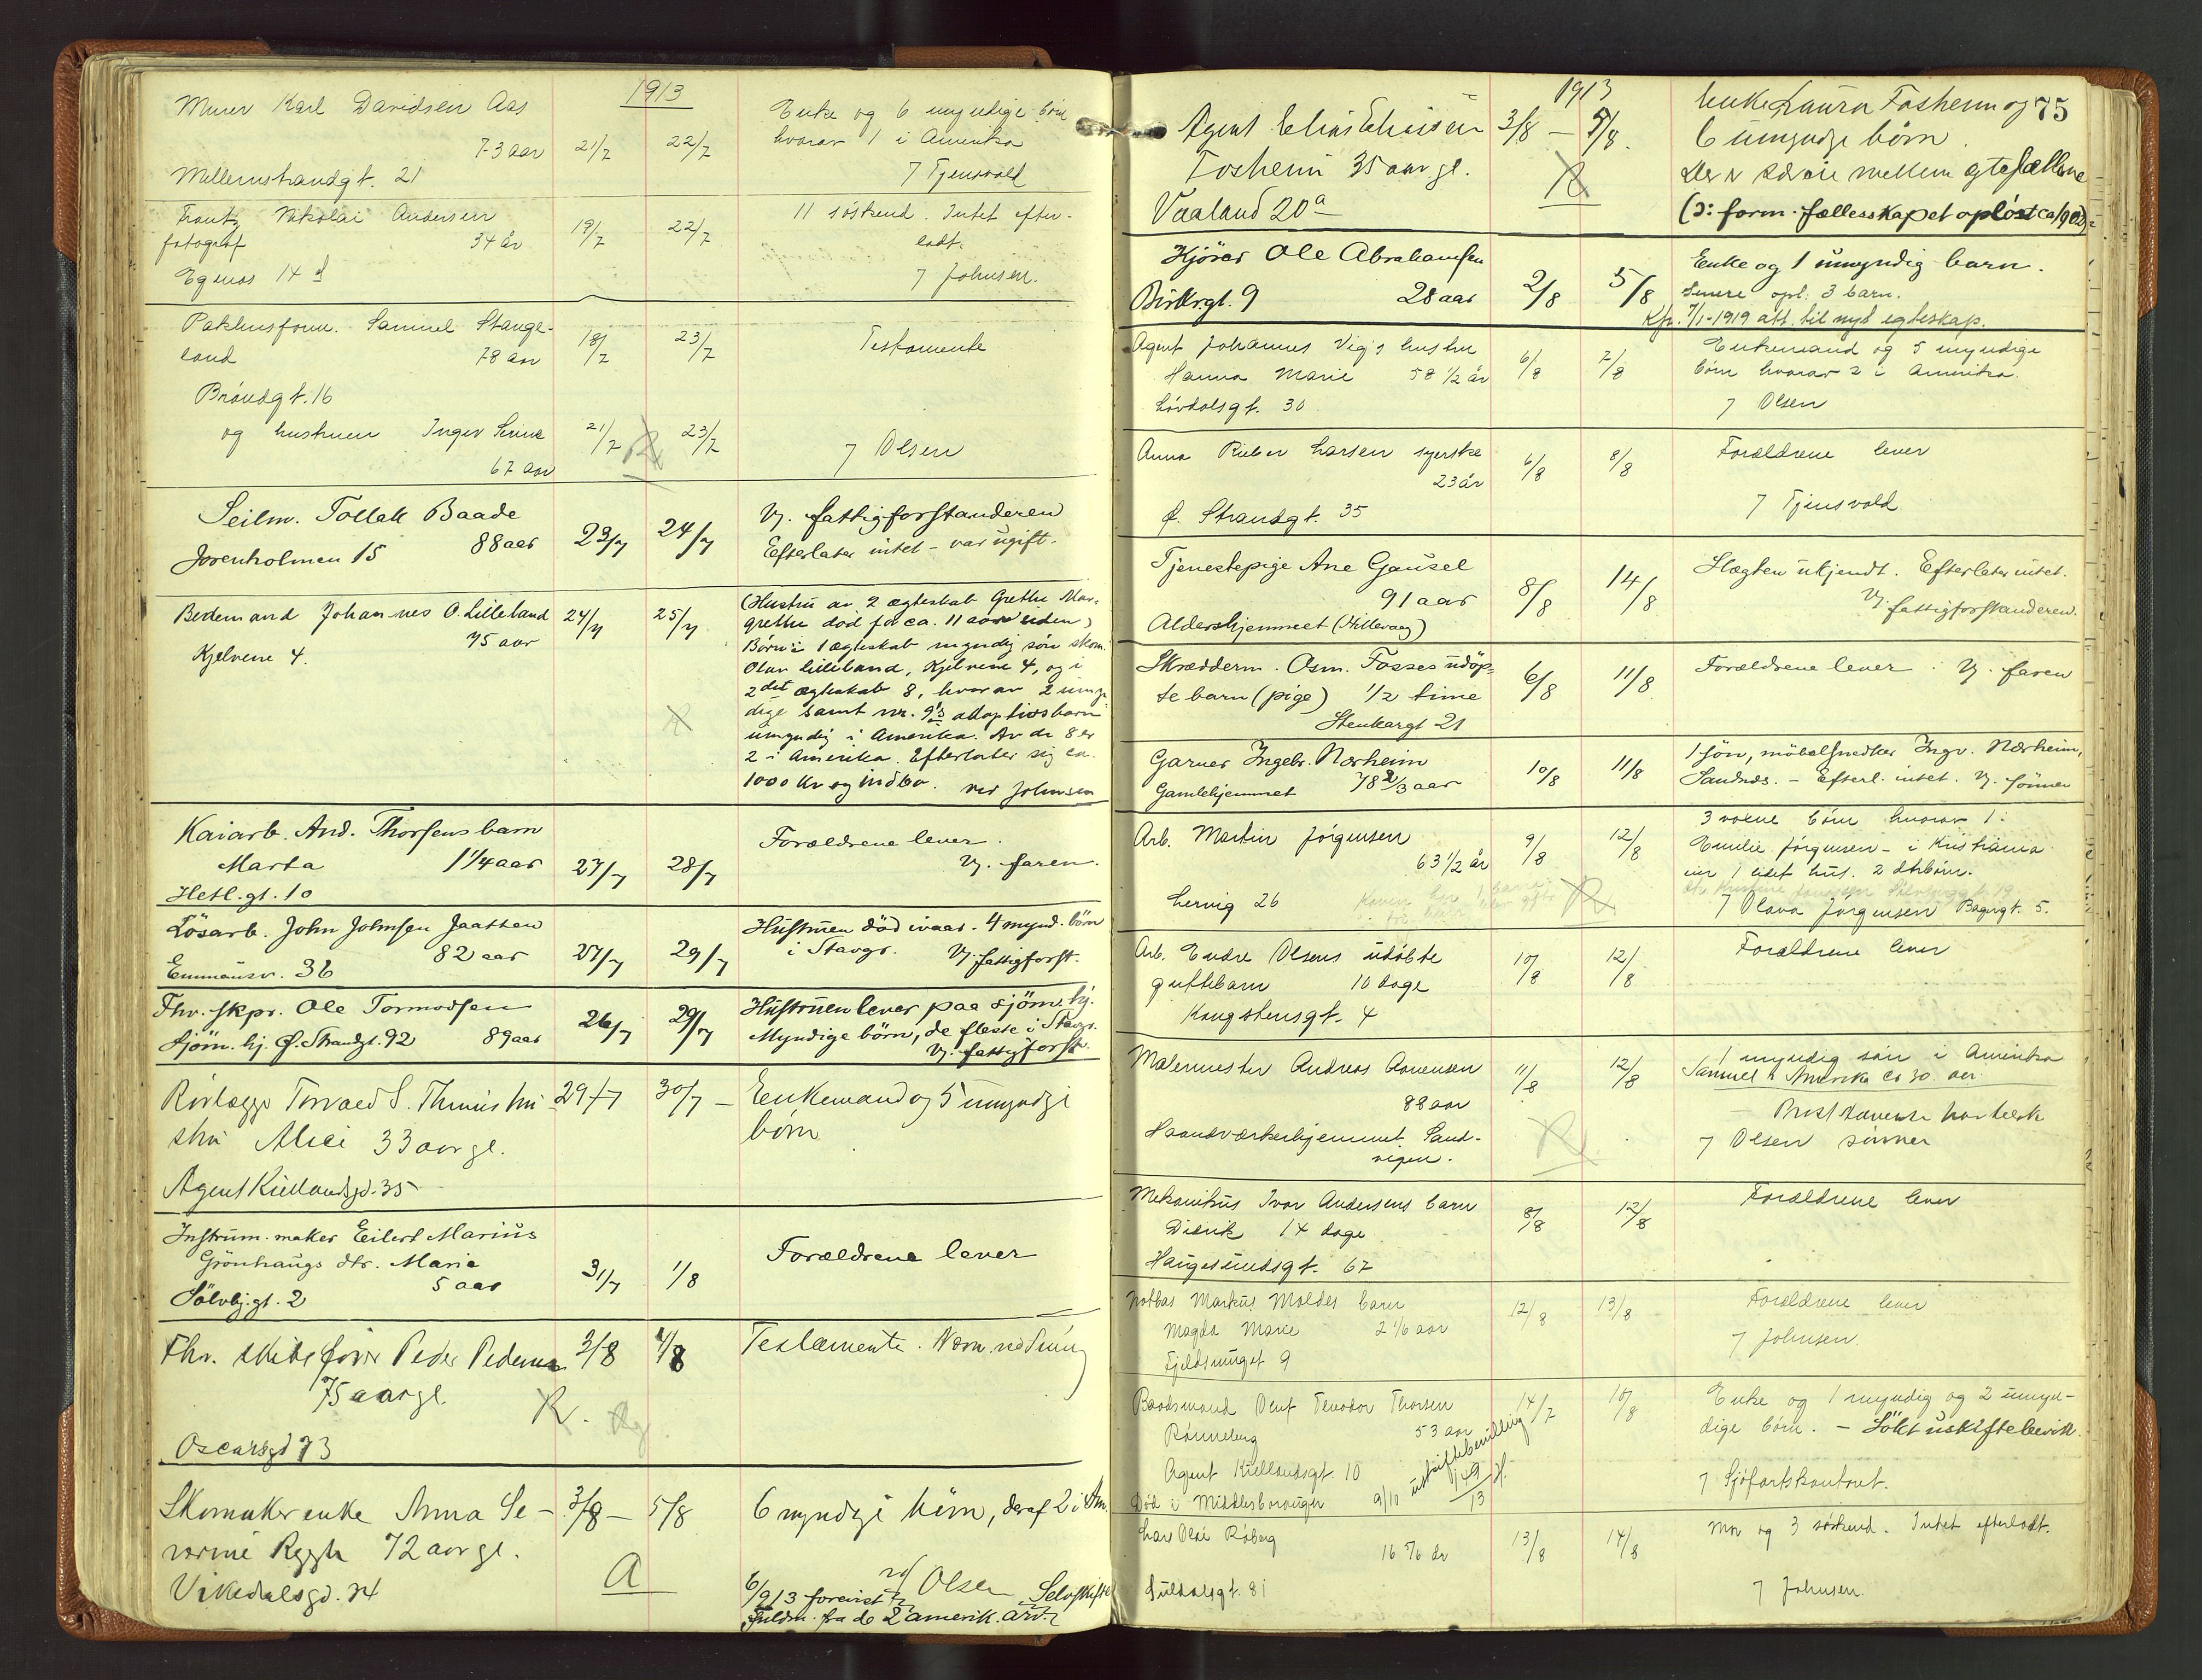 1913
Murer Karl Davidsen Aas
73 aar 21/7 22/7
Mellemstrandgt. 21
Enke og 6 myndige børn
hvorav 1 i Amerika
7 Tjensvold
Frantz Nikolai Andersen
fotograf 34 år 19/7 22/7
Egenes 14 d
11 söskend. Intet efter-
ladt.
7 Johnsen.
Pakhusform. Samuel Stange-
land 78 aar 18/7 23/7
Bröndgt. 16
Testamente
og hustruen Inger Serine 21/7 23/7
67 aar
R
7 Olsen
Seilm. Tollak Baade
88 aar 23/7 24/7
Jorenholmen 15
V. fattigforstanderen
Efterlater intet - var ugift.
Bedemand Johannes O. Lilleland 24/7 25/7
75 aar
Kjelvene 4.
(Hustru av 2 ægteskab Grethe Mar-
grethe død for ca. 11 aar siden)
Børn i 1 ægteskab myndig sön skom.
Olav Lilleland, Kjelvene 4, og i
2det ægteskab 8, hvorav 2 umyn-
dige samt nr. 9's adoptivsbarn
umyndig i Amerika. Av de 8 er
2 i Amerika. Efterlater sig ca.
1000 kr og indbo. ved Johnsen
Kaiarb. And. Thorsens barn
Marta 1 1/4 aar 27/7 28/7
Hetl.gt. 10
Forældrene lever.
V. faren.
Lösarb. John Johnsen Jaatten
82 aar 27/7 29/7
Emmausv. 36
Hustruen död ivaar. 4 mynd. börn
i Stavgr. V. fattigforst.
Fhv. skpr. Ole Tormodsen
Sjöm. hj. Ø. Strandgt. 92 89 aar 26/7 29/7
Hustruen lever paa sjöm. hj.
Myndige börn, de fleste i Stavgr.
V. fattigforst.
Rörlægger Torvald S. Thunes hu- 29/7 30/7 -
stru Alice 33 aar gl.
Agent Kiellandsgd. 35
Enkemand og 5 umyndige
børn
Instrum. maker Eilert Marius
Grönhaugs dtr. Marie
5 aar 31/7 1/8
Sölvbj.gt. 2
Forældrene lever
Fhv. skibsfører Peder Pedersen 3/8 4/8
75 aar gl.
R.
Oscarsgd 73
Testamente.
Skomaker enke Anna Se- 3/8 - 5/8
verine Rygh 72 aar gl.
Vikedalsgd. 24
A
6 myndige börn, deraf 2 i Am.
v/ Olsen Selvskifte
6/9 13 forevist
fuldm. fra de 2 amerik. arv.
75
1913
Agent Elias Eliassen 3/8 - 5/8.
Fosheim 35 aar gl.
Vaaland 20a
R
Enke Laura Fosheim og
6 umyndge børn.
Der er særeie mellem egtefællene
(ɔ: form. fællesskapet opløst ca 1902)
Kjörer Ole Abrahamsen
Birkrgt. 9 28 aar 2/8 5/8
Enke og 1 umyndig barn.
Senere opl. 3 barn.
Kfr. 7/1-1919 att. til nyt egteskap.
Agent Johannes Vig's hustru
Hanna Marie 58 1/2 år 6/8 7/8
Lövdalsgt. 30
Enkemand og 5 myndige
börn hvorav 2 i Amerika
7 Olsen
Anna Rieber Larsen syerske
23 år 6/8 8/8
Ø. Strandgt. 35
Forældrene lever
7 Tjensvold
Tjenestepige Ane Gausel
91 aar 8/8 14/8
Aldershjemmet (Hillevaag)
Slægten ukjendt. Efterlater intet.
V. fattigforstanderen.
Skrædderm. Osm. Fosses udöp-
te barn (pige) 1/2 time 6/8 11/8
Stenkargt 21
Forældrene lever. V. faren
Garver Ingebr. Nærheim
Gamlehjemmet 78 2/3 aar 10/8 11/8
1 sön, möbelsnedker Ingv. Nærheim,
Sandnæs. - Efterl. intet. V. sönnen
Arb. Martin Jörgensen
63 1/2 år 9/8 12/8
Lervig 26
R
3 voksne börn hvorav 1:
Emilie Jörgensen - i Kristiania
7 Olava Jörgensen Bagergt. 5.
Arb. Endre Olsens udöbte
guttebarn 10 dage 10/8 12/8
Kongstensgt. 4
Forældrene lever
Malermester Andreas Aanensen 11/8 12/8
88 aar
Haandværkerhjemmet Sand-
vigen.
R
1 myndig sön i Amerika
Samuel i Amerika
7 Olsen
Mekanikus Ivar Andersens barn
Didrik 14 dage 8/8 12/8
Haugesundsgt. 67
Forældrene lever
Notbas Markus Moldes barn
Magda Marie 2 1/6 aar 12/8 13/8
Fjeldsmuget 9
Forældrene lever
7 Johnsen.
Baadsmand Oluf Teodor Thorsen 14/7 10/8
Rönneberg 53 aar
Agent Kiellandsgt. 10
Död i Middlesborough
uskiftebevilling
9/10
13
Enke og 1 myndig og 2 umyn-
dige börn. - Sökt uskiftebevil.
7 Sjöfartskontoret.
Lars Olai Röberg
16 5/6 år 13/8 14/8
Suldalsgt. 81
Mor og 3 söskend. Intet efterladt.
7 Johnsen.